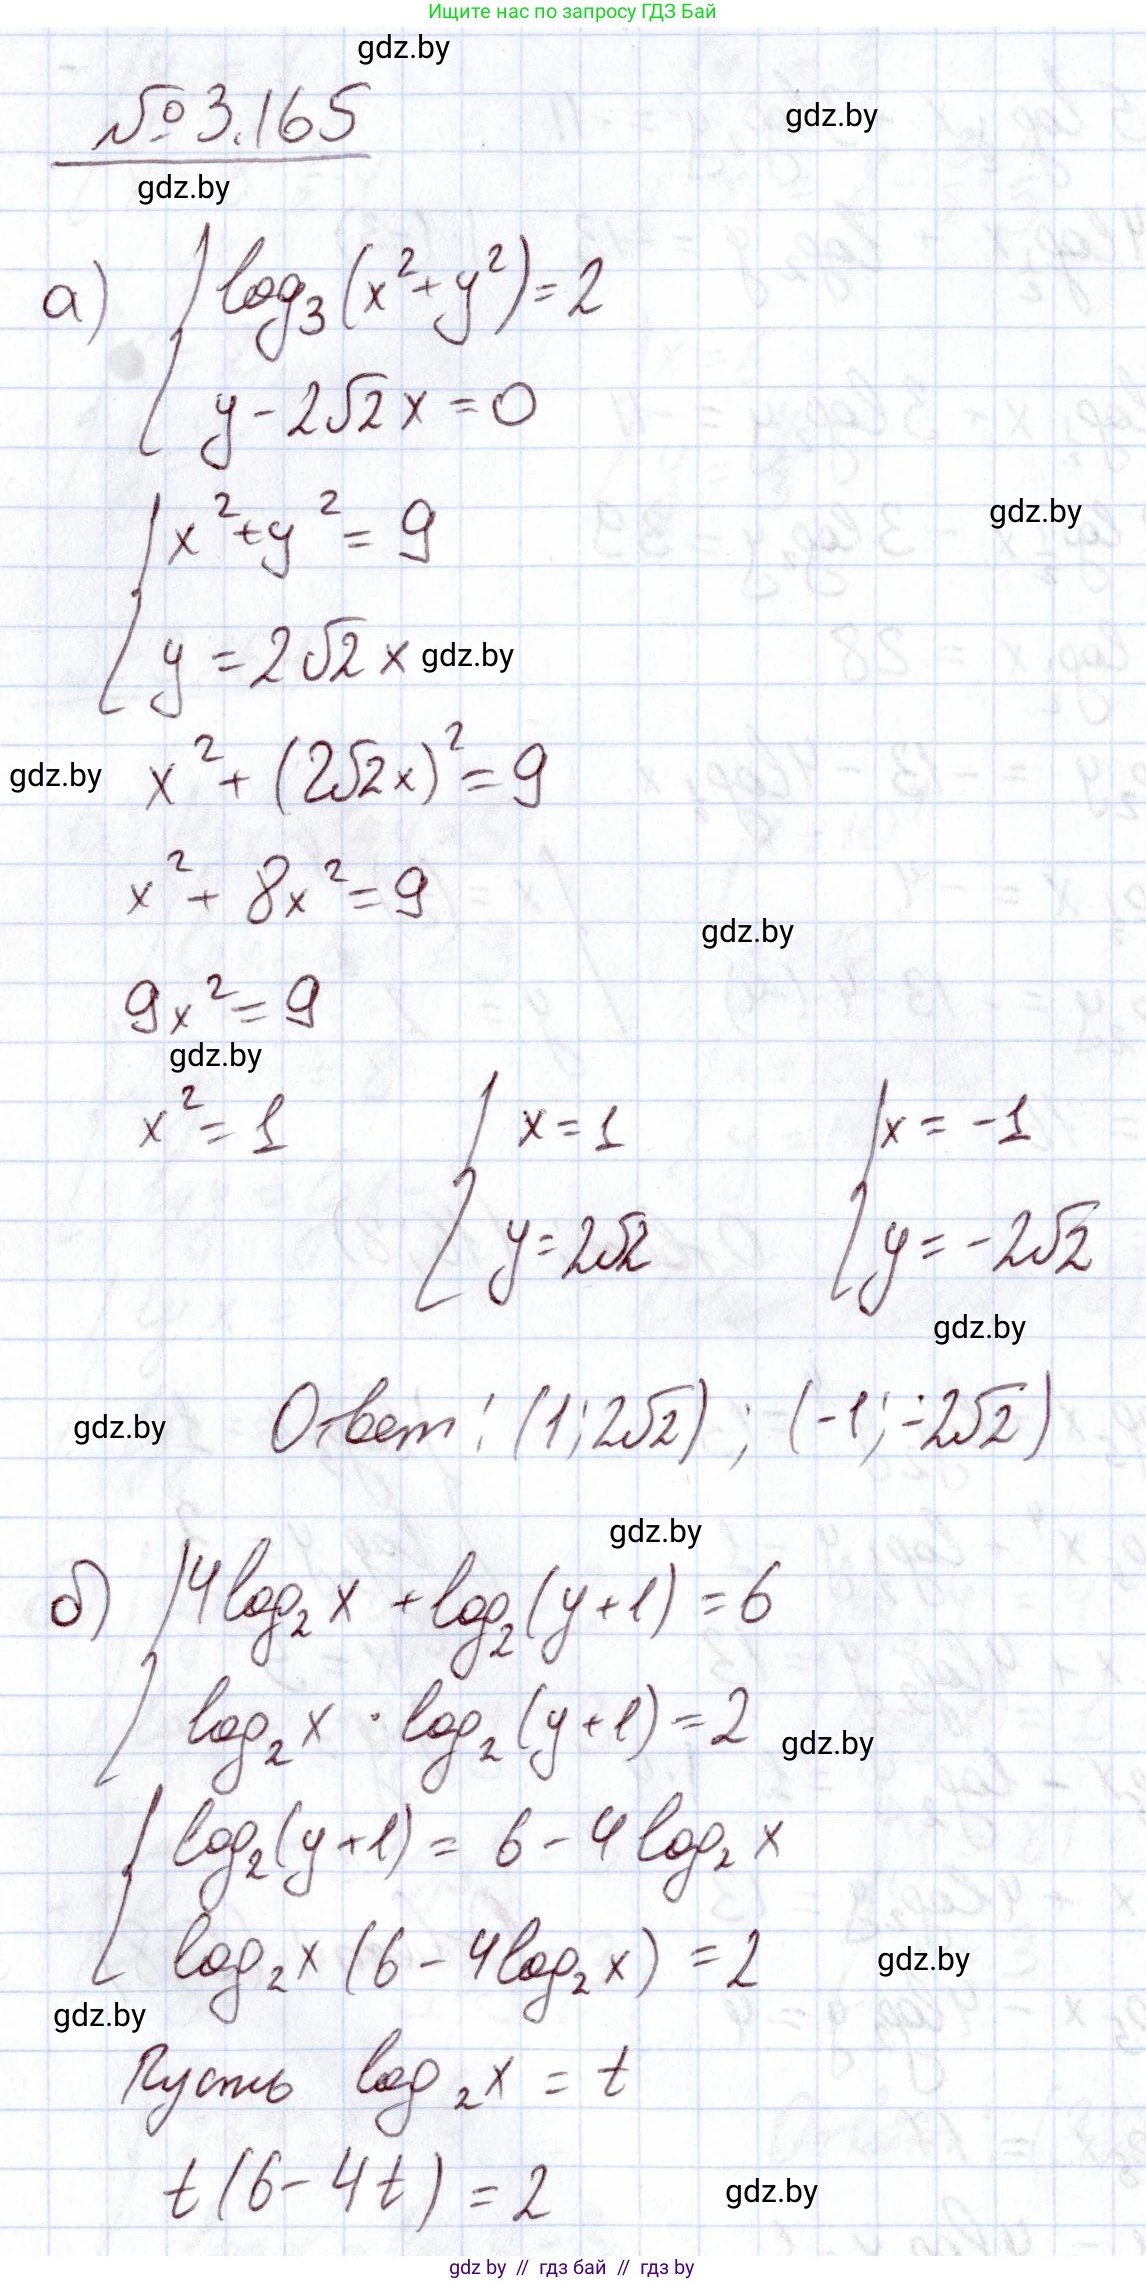 Ищите нас по запросу ГДЗ Бай
gdz.by
№3.165
gdz.by
gdz.by
а) { log₃(x²+y²)=2
y-2√2x=0
{ x²+y²=9
gdz.by
y=2√2x
gdz.by
gdz.by
x²+(2√2x)²=9
x²+8x²=9
gdz.by
9x²=9
gdz.by
x²=1 { x=1 { x=-1
y=2√2 y=-2√2
gdz.by
gdz.by
Ответ: (1;2√2); (-1;-2√2)
gdz.by
б) { 4log₂x+log₂(y+1)=6
log₂x·log₂(y+1)=2
gdz.by
{ log₂(y+1)=6-4log₂x
log₂x(6-4log₂x)=2
gdz.by
gdz.by
Пусть log₂x=t
t(6-4t)=2
gdz.by
gdz by // гдз бай // гдз by